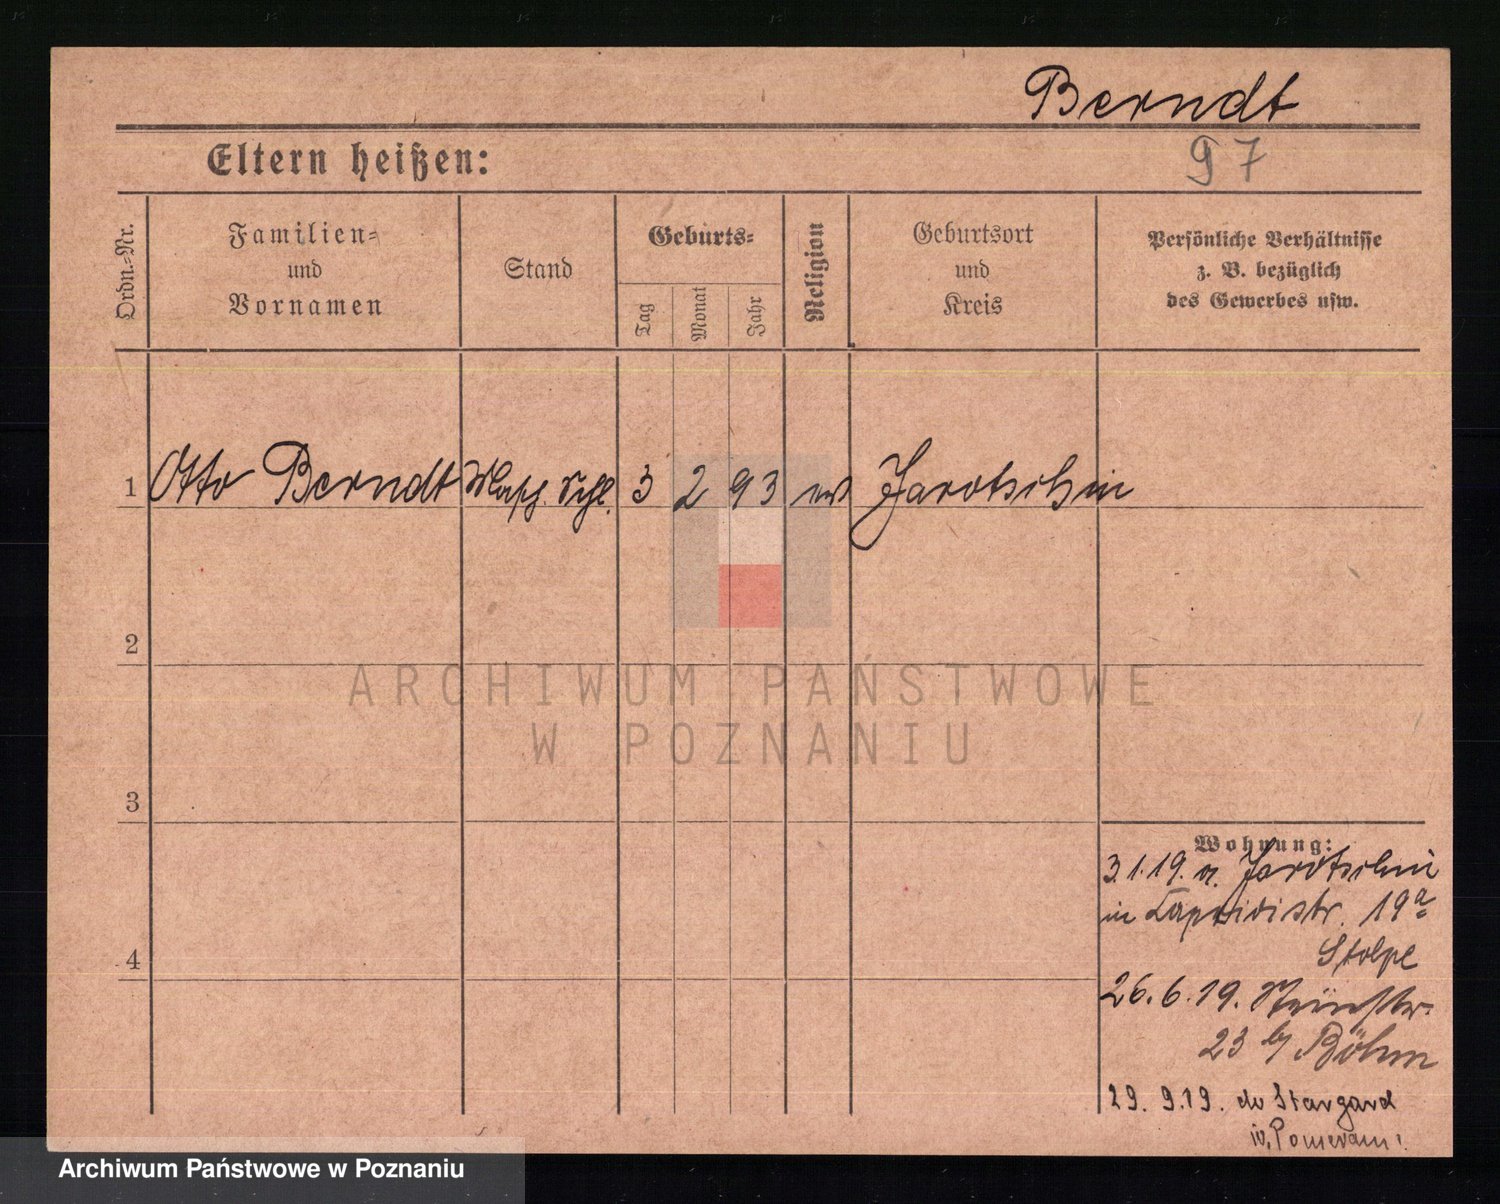 Berndt
Eltern heißen:
97
Ordn.-Nr.
Familien-
und
Vornamen
Stand
Geburts-
Tag
Monat
Jahr
Religion
Geburtsort
und
Kreis
Persönliche Verhältnisse
z. B. bezüglich
des Gewerbes usw.
1 Otto Berndt Masch. Schl. 3 2 93 ev Jarotschin
2
3
4
ARCHIWUM PAŃSTWOWE
W POZNANIU
Wohnung:
3.1.19. a. Jarotschin
in 19a
Stolpe
26.6.19.
23 b/ Böhm
29. 9.19. do Stargard
Archiwum Państwowe w Poznaniu